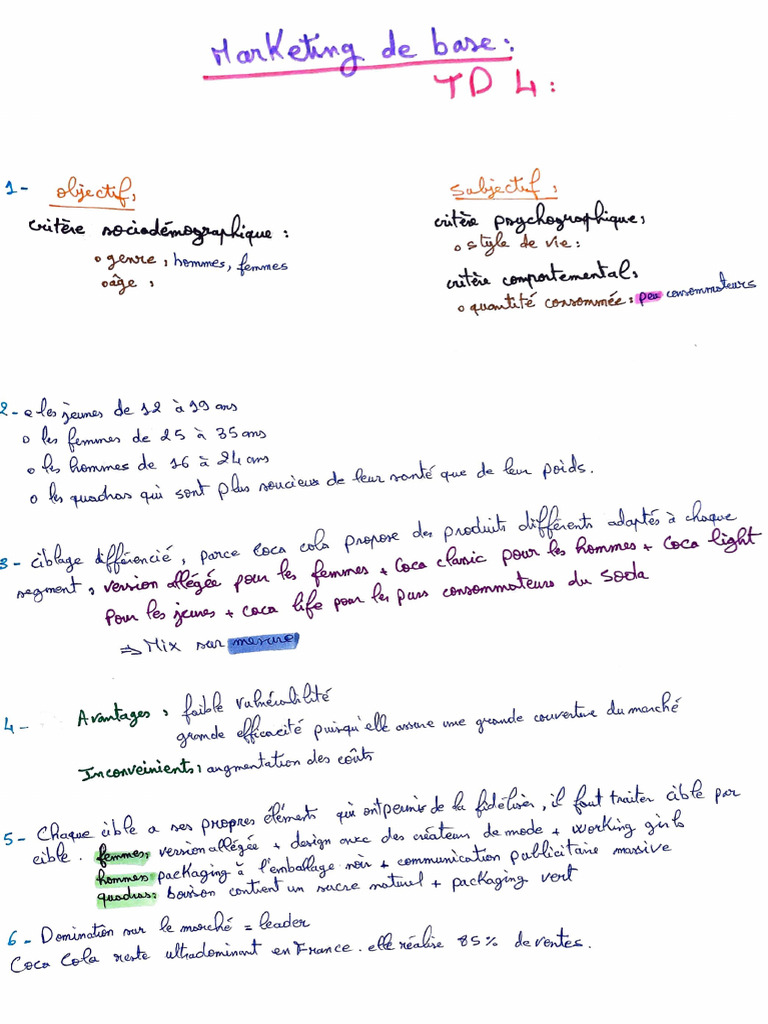 Marketing de base :
TD 4 :
1- objectif :
critère sociodémographique :
o genre : hommes, femmes
o âge :
subjectif :
critère psychographique :
o style de vie :
critère comportemental :
o quantité consommée : peu consommateurs
2- o les jeunes de 12 à 19 ans
o les femmes de 25 à 35 ans
o les hommes de 16 à 24 ans
o les quadras qui sont plus soucieux de leur santé que de leur poids.
3- ciblage différencié, parce Coca cola propose des produits différents adaptés à chaque
segment : version allégée pour les femmes + Coca classic pour les hommes + Coca light
pour les jeunes + coca life pour les purs consommateurs du soda
⇒ Mix sur mesure
4- Avantages : faible vulnérabilité
grande efficacité puisqu'elle assure une grande couverture du marché
Inconveinients : augmentation des coûts
5- Chaque cible a ses propres éléments qui ont permis de la fidéliser, il faut traiter cible par
cible. femmes : version allégée + design avec des créateurs de mode + working girls
hommes : packaging à l'emballage noir + communication publicitaire massive
quadras : boisson contient un sucre naturel + packaging vert
6- Domination sur le marché = leader
Coca Cola reste ultradominant en France. elle réalise 85% de ventes.